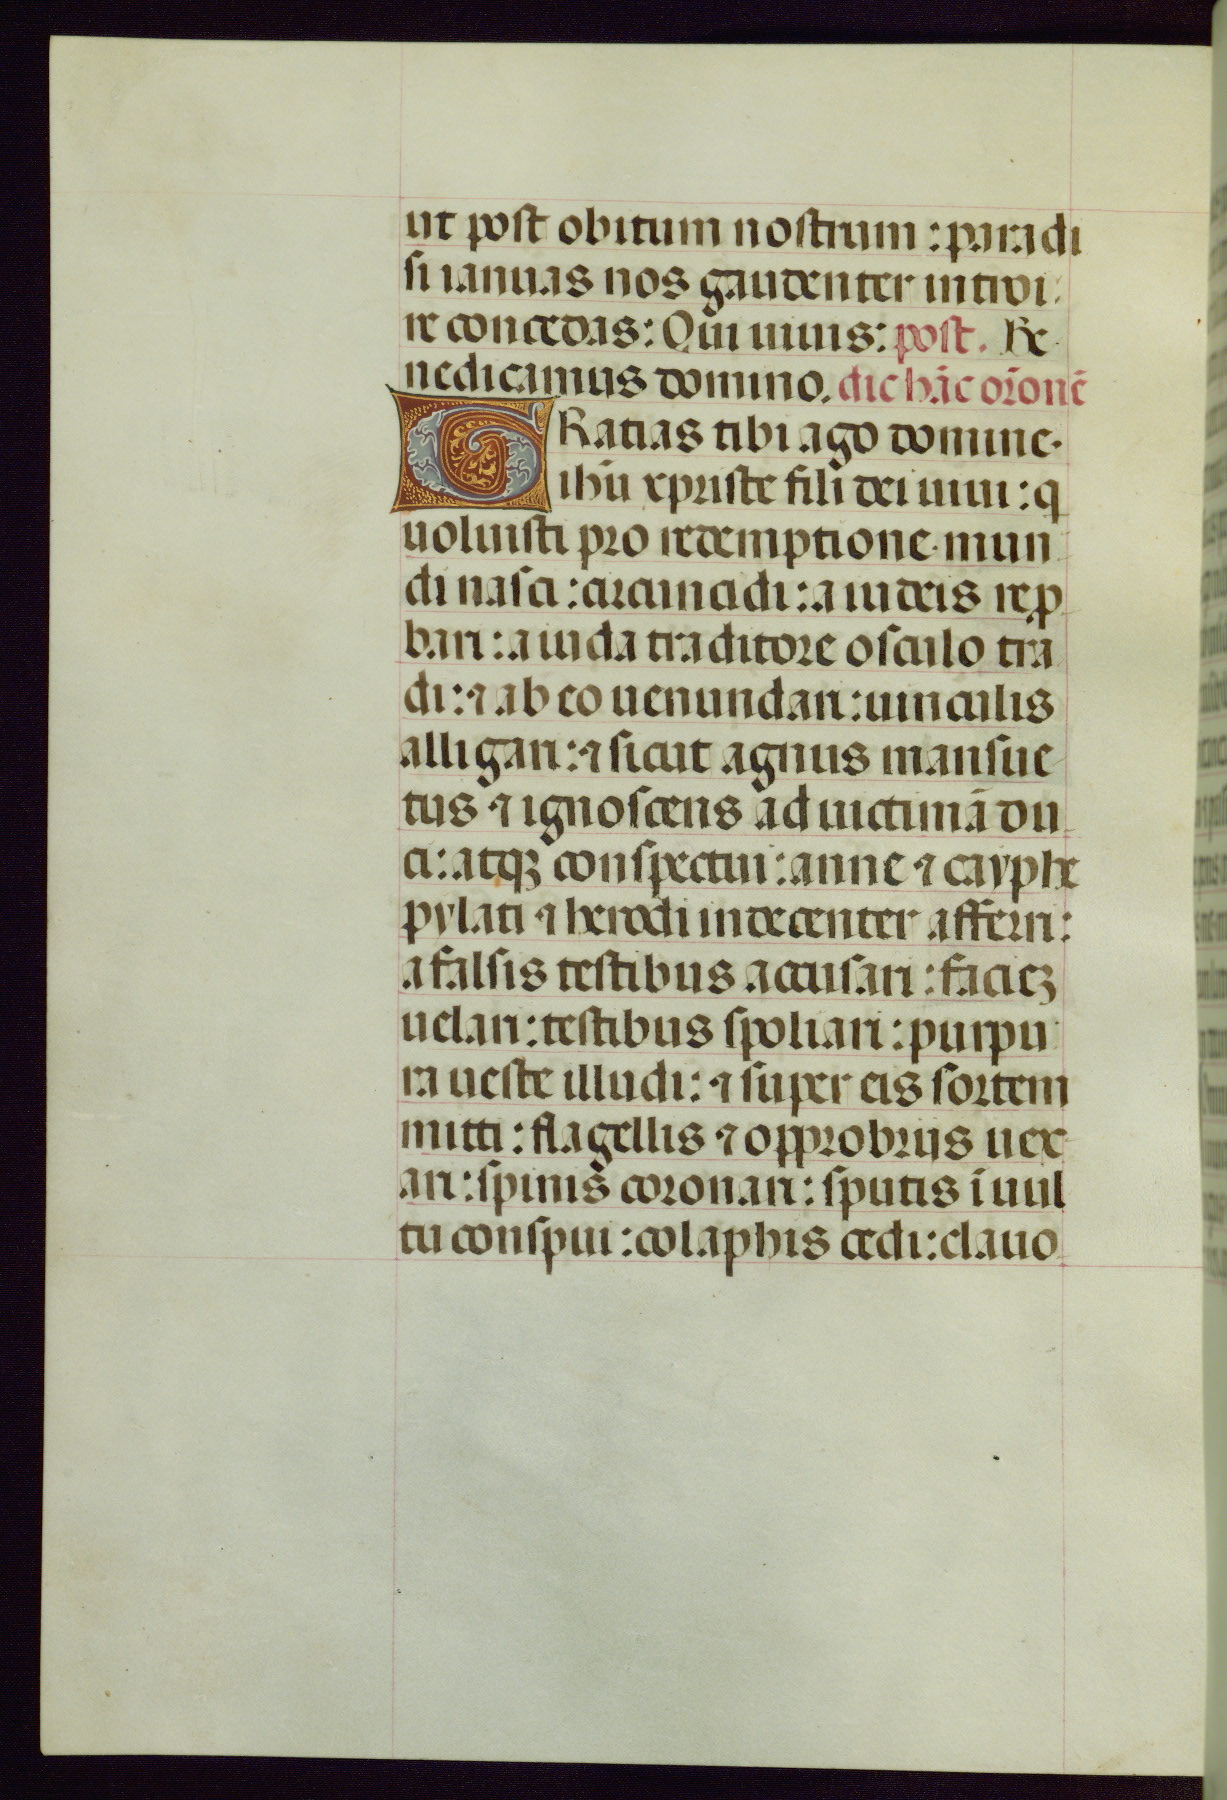 ut post obitum nostrum : paradi
si ianuas nos gaudenter introi:
re concedas: Qui uiuis: post. Be
nedicamus domino. dic hāc orōnē
GRatias tibi ago domine.
ihū xpriste fili dei uiui : q
uoluisti pro redemptione mun
di nasci : circuncidi : a iudeis rep
bari : a iuda traditore osculo tra
di : ⁊ ab eo uenundari : uinculis
alligari : ⁊ sicut agnus mansue
tus ⁊ ignoscens ad uictimā du
ci : atqꝫ conspectui : anne ⁊ cayphe
pylati ⁊ herodi indecenter afferri :
a falsis testibus accusari : facieꝫ
uelari : testibus spoliari : purpu
ra ueste illudi : ⁊ super eis sortem
mitti : flagellis ⁊ opprobrijs uex
ari : spinis coronari : sputis ī uul
tu conspui : colaphis cedi : clauo